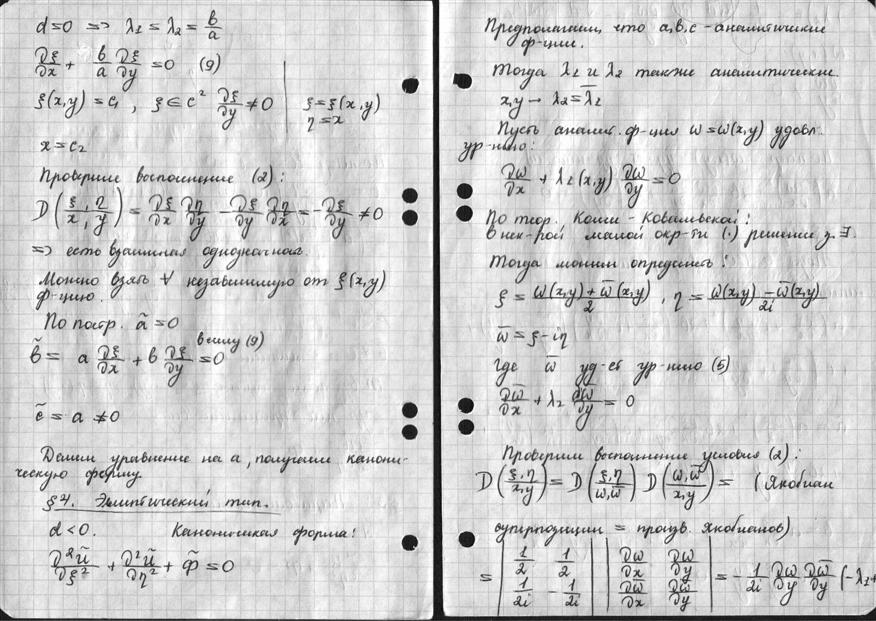 d=0 => λ₁ = λ₂ = b/a
∂ξ/∂x + b/a ∂ξ/∂y = 0 (9)
ξ(x,y) = c₁, ξ ∈ c² ∂ξ/∂y ≠ 0 | ξ = ξ(x,y)
η = x
x = c₂
Проверим выполнение (2):
D(ξ,η/x,y) = ∂ξ/∂x ∂η/∂y - ∂ξ/∂y ∂η/∂x = -∂ξ/∂y ≠ 0
=> есть взаимная однозначн.
Можно взять ∀ независимую от ξ(x,y)
ф-цию.
По постр. ã = 0
b̃ = a ∂ξ/∂x + b ∂ξ/∂y = 0 в силу (9)
c̃ = a ≠ 0
Делим уравнение на a, получаем канони-
ческую форму.
§4. Эллиптический тип.
d < 0. Каноническая форма:
∂²ũ/∂ξ² + ∂²ũ/∂η² + Φ̃ = 0
Предполагаем, что a, b, c - аналитические
ф-ции.
Тогда λ₁ и λ₂ также аналитические.
x, y → λ₂ = λ̄₁
Пусть аналит. ф-ция ω = ω(x,y) удовл.
ур-нию:
∂ω/∂x + λ₁(x,y) ∂ω/∂y = 0
По теор. Коши - Ковалевской:
в нек-рой малой окр-ти (·) решение з. ∃.
Тогда можем определить:
ξ = ω(x,y) + ω̄(x,y)/2, η = ω(x,y) - ω̄(x,y)/2i
ω̄ = ξ - iη
где ω̄ уд-ет ур-нию (5)
∂ω̄/∂x + λ₂ ∂ω̄/∂y = 0
Проверим выполнение условия (2):
D(ξ,η/x,y) = D(ξ,η/ω,ω̄) D(ω,ω̄/x,y) = (Якобиан
суперпозиции = произв. якобианов)
= |1/2 1/2; 1/2i -1/2i| |∂ω/∂x ∂ω/∂y; ∂ω̄/∂x ∂ω̄/∂y| = -1/2i ∂ω/∂y ∂ω̄/∂y (-λ₁+